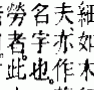 細如木
夫亦作
名字也
勞者此